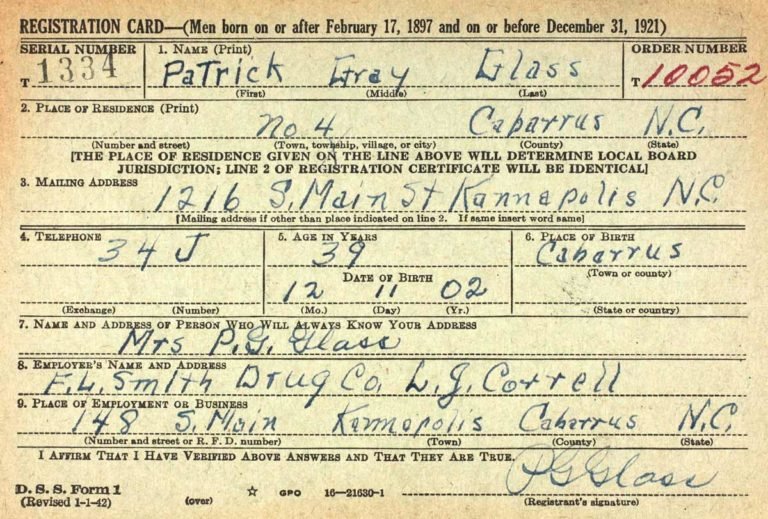 REGISTRATION CARD—(Men born on or after February 17, 1897 and on or before December 31, 1921)
SERIAL NUMBER 1. NAME (Print) ORDER NUMBER
T 1334 Patrick Gray Glass T 10052
(First) (Middle) (Last)
2. PLACE OF RESIDENCE (Print)
No 4 Cabarrus N.C.
(Number and street) (Town, township, village, or city) (County) (State)
[THE PLACE OF RESIDENCE GIVEN ON THE LINE ABOVE WILL DETERMINE LOCAL BOARD
JURISDICTION; LINE 2 OF REGISTRATION CERTIFICATE WILL BE IDENTICAL]
3. MAILING ADDRESS
1216 S. Main St Kannapolis N.C.
[Mailing address if other than place indicated on line 2. If same insert word same]
4. TELEPHONE 5. AGE IN YEARS 6. PLACE OF BIRTH
34 J 39 Cabarrus
(Town or county)
DATE OF BIRTH
12 11 02
(Exchange) (Number) (Mo.) (Day) (Yr.) (State or country)
7. NAME AND ADDRESS OF PERSON WHO WILL ALWAYS KNOW YOUR ADDRESS
Mrs P. G. Glass
8. EMPLOYER'S NAME AND ADDRESS
F. L. Smith Drug Co. L. J. Correll
9. PLACE OF EMPLOYMENT OR BUSINESS
148 S. Main Kannapolis Cabarrus N.C.
(Number and street or R. F. D. number) (Town) (County) (State)
I AFFIRM THAT I HAVE VERIFIED ABOVE ANSWERS AND THAT THEY ARE TRUE.
P G Glass
D. S. S. Form 1
(Revised 1-1-42) (over) ☆ GPO 16—21630-1 (Registrant's signature)